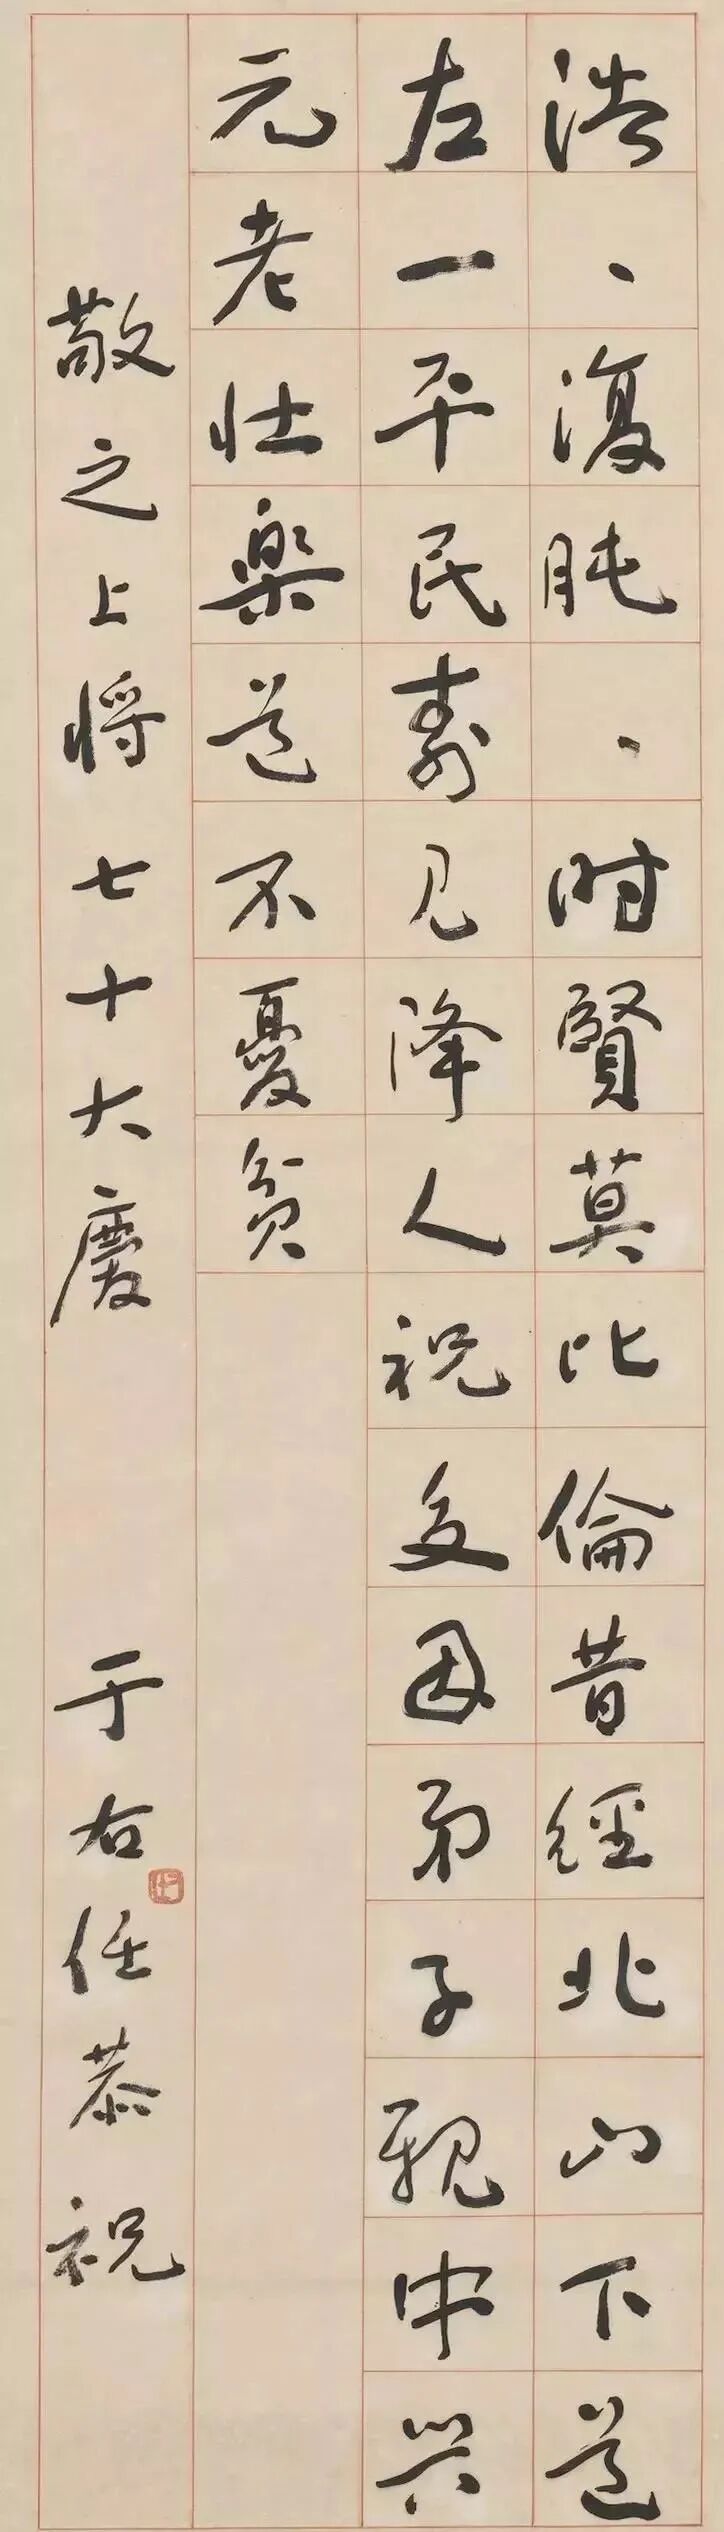 浩、復肫、時賢莫比倫昔經北山下道
左一平民壽見降人祝多因弟子親中興
元老壯樂道不憂貧
敬之上將七十大慶 于右任恭祝